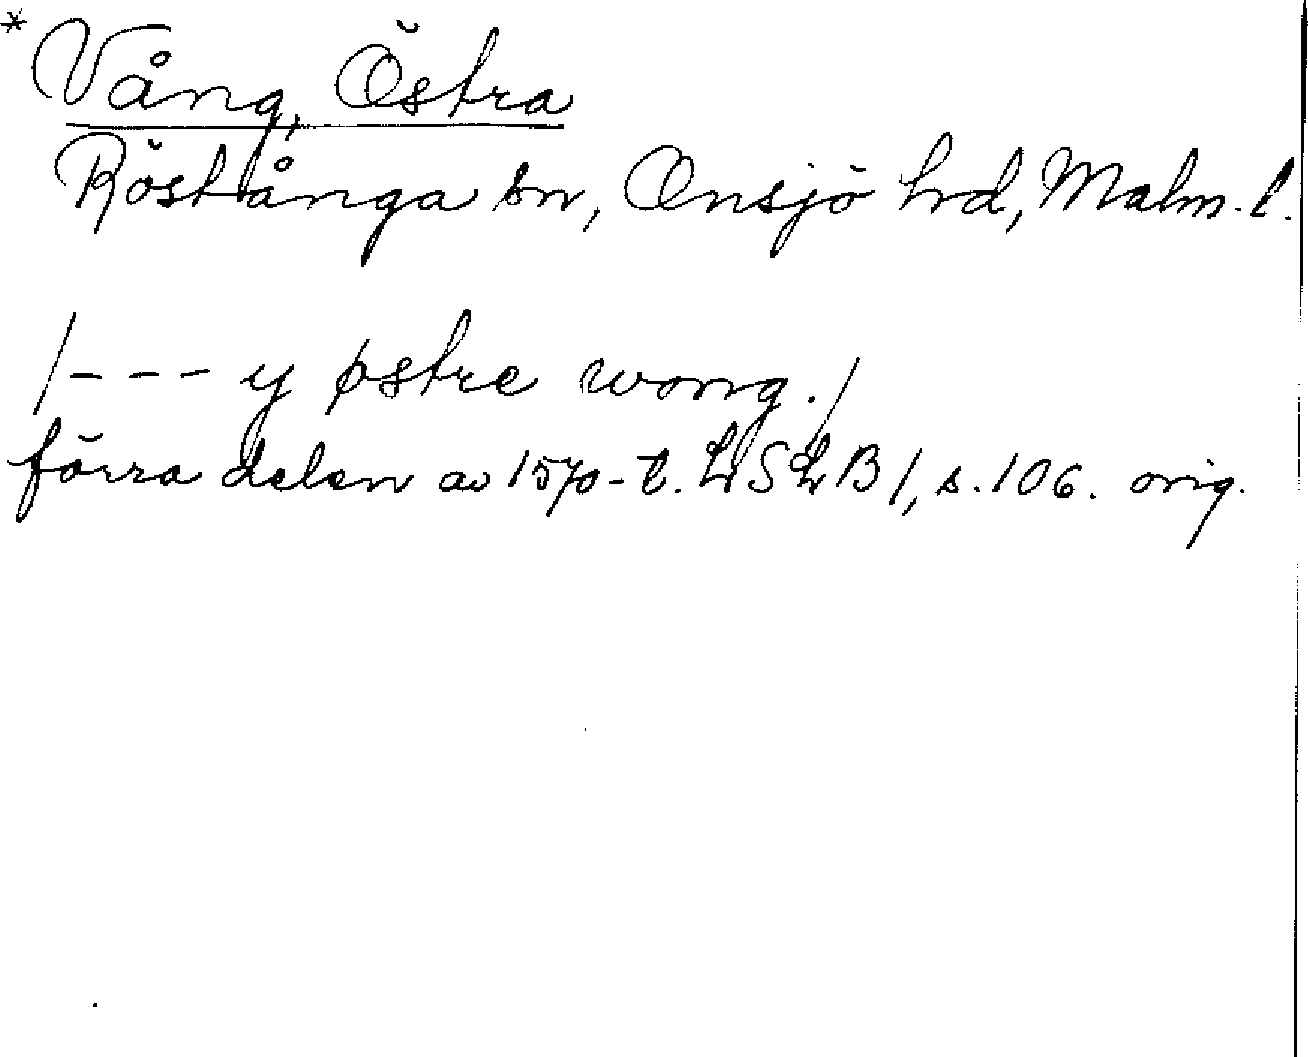 *Vång, Östra
Röstånga sn, Onsjö hrd, Malm. l.
/--- y østre wong./
förra delen av 1570-t. LSLB1, s. 106. orig.